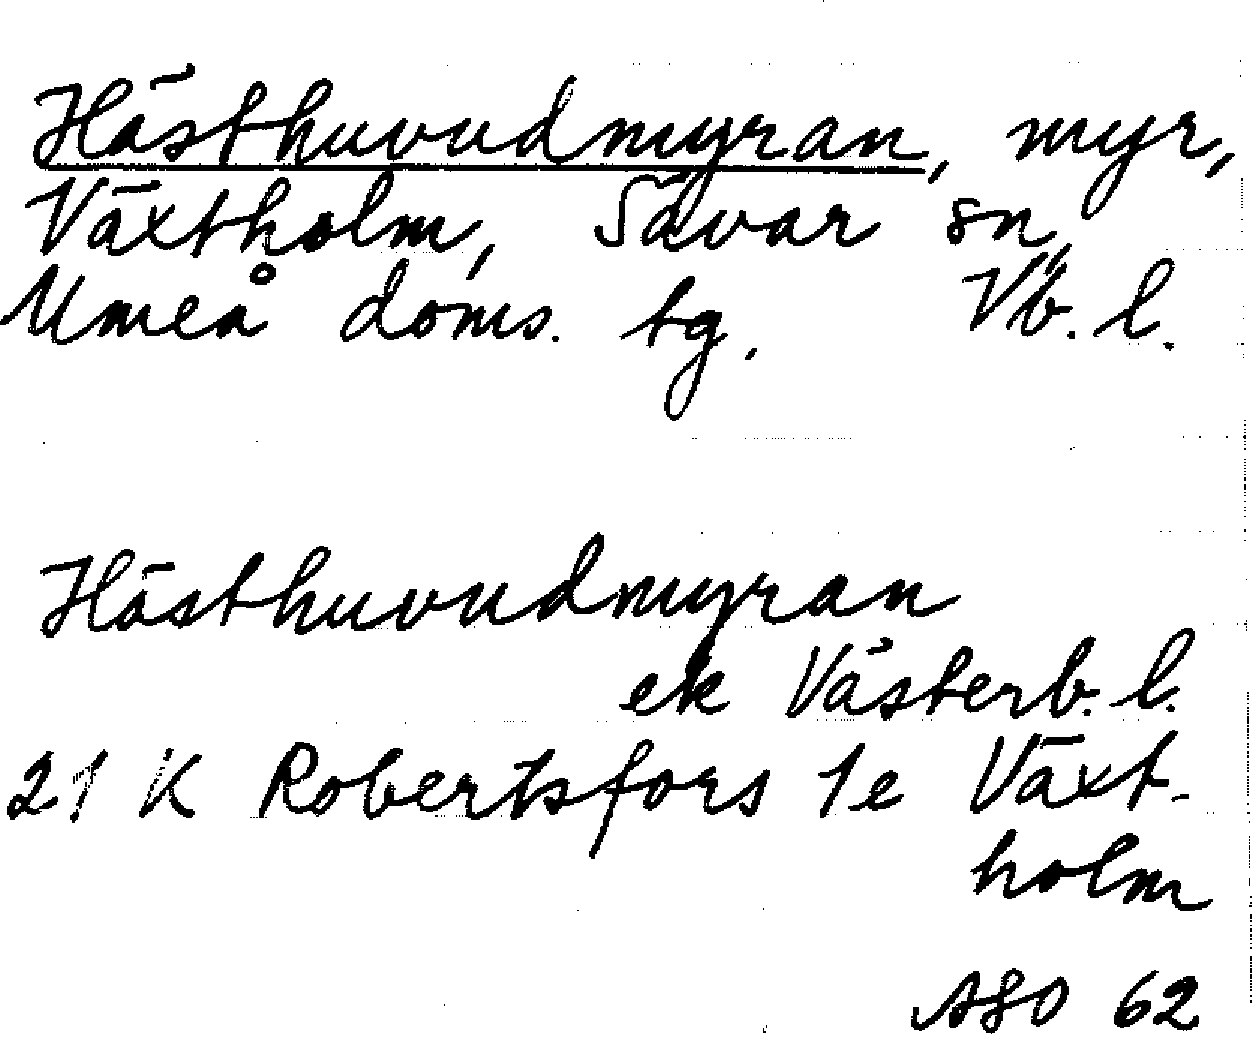 Hästhuvudmyran, myr,
Växtholm, Sävar sn,
Umeå doms. tg. Vb. l.
Hästhuvudmyran
ek Västerb. l.
21 K Robertsfors 1e Växt-
holm
ASO 62